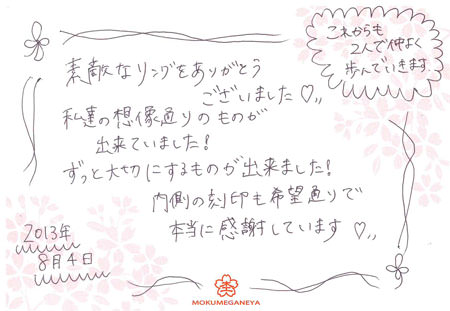 これからも
2人で仲よく
歩んでいきます。
素敵なリングをありがとう
ございました♡,,
私達の想像通りのものが
出来ていました!
ずっと大切にするものが出来ました!
内側の刻印も希望通りで
本当に感謝しています♡,,
2013年
8月4日
MOKUMEGANEYA